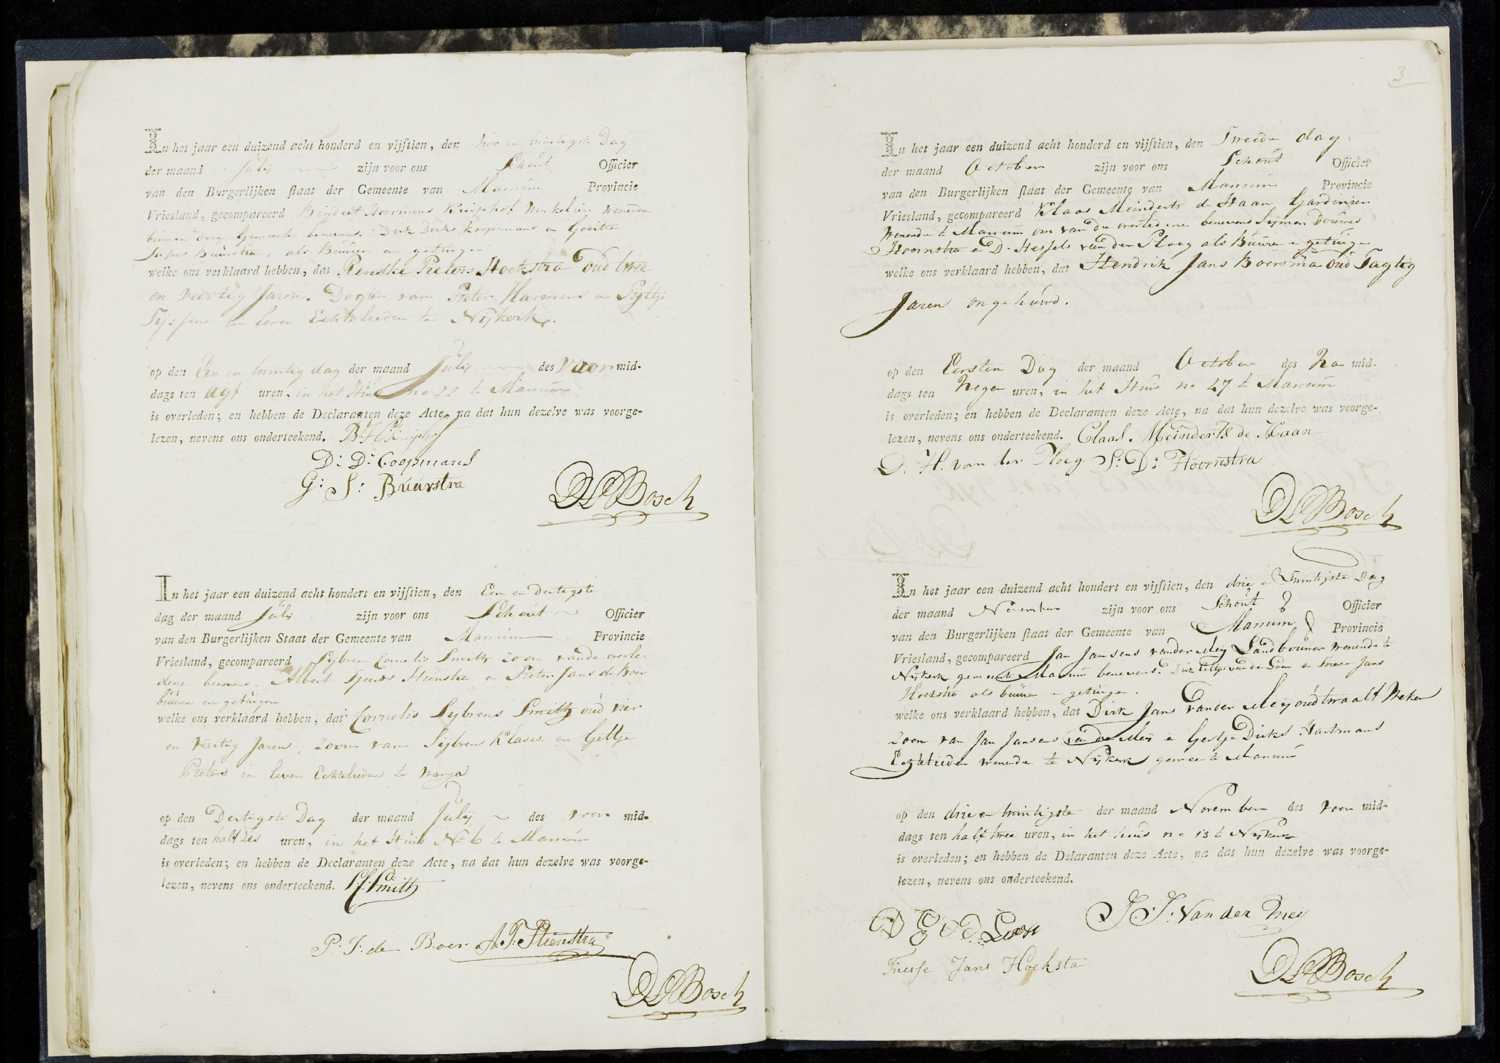 In het jaar een duizend acht honderd en vijftien, den twee en twintigste Dag
der maand July zijn voor ons Schout Officier
van den Burgerlijken staat der Gemeente van Marrum Provincie
Vriesland, gecompareerd Harmens Kuiphof Winkelier
binnen deze Gemeente benevens Dirk Dirks Koopmans en Goitse
Buurstra, als Buuren en getuigen
welke ons verklaard hebben, dat Renske Pieters Hoekstra oud
en veertig Jaren. Dogter van Pieter Harmens en
in leven Echtelieden te Nijkerk.
op den Een en twintig dag der maand July des voormid-
dags ten agt uren, in het Huis no 22 te Marrum
is overleden; en hebben de Declaranten deze Acte, na dat hun dezelve was voorge-
lezen, nevens ons onderteekend. B: H: Kuiphof
D: D: Coopmans
G: S: Buurstra
Bosch
In het jaar een duizend acht hondert en vijftien, den Een en dertigste
dag der maand July zijn voor ons Schout Officier
van den Burgerlijken Staat der Gemeente van Marrum Provincie
Vriesland, gecompareerd Sijbren Cornelis Smith Zoon van de overle-
dene benevens Albert Stienstra en Pieter Jans de Boer
buuren en getuigen
welke ons verklaard hebben, dat Cornelis Sijbrens Smith oud vier
en veertig Jaren, Zoon van Sijbren Klases en Geltje
Pieters in leven Echtelieden te
op den Dertigste Dag der maand July des voor mid-
dags ten half uren, in het Huis No 6 te Marrum
is overleden; en hebben de Declaranten deze Acte, na dat hun dezelve was voorge-
lezen, nevens ons onderteekend. Smith
P: J: de Boer Stienstra
Bosch
3
In het jaar een duizend acht honderd en vijftien, den Tweede dag
der maand October zijn voor ons Schout Officier
van den Burgerlijken staat der Gemeente van Marrum Provincie
Vriesland, gecompareerd Klaas Meinderts de Haan Gardenier
wonende te Marrum om van de overledene benevens Sijmen Douwes
Hoornstra en D. Hessels van der Ploeg als Buuren en getuigen
welke ons verklaard hebben, dat Hendrik Jans Boersma oud Tagtig
Jaren ongehuwd.
op den Eersten Dag der maand October des Na mid-
dags ten Negen uren, in het Huis no 47 te Marrum
is overleden; en hebben de Declaranten deze Acte, na dat hun dezelve was voorge-
lezen, nevens ons onderteekend. Claas Meinderts de Haan
D: H: van der Ploeg S: D: Hoornstra
Bosch
In het jaar een duizend acht hondert en vijftien, den drie en Twintigste Dag
der maand November zijn voor ons Schout Officier
van den Burgerlijken staat der Gemeente van Marrum Provincie
Vriesland, gecompareerd Jan Jansens van der Meij Landbouwer wonende te
Nijkerk gemeente Marrum benevens Dirk van der Loon en Jans
Hoekstra als buuren en getuigen.
welke ons verklaard hebben, dat Dirk Jans van der Meij oud twaalf Weken
Zoon van Jan Jansens van der Meij en Geeltje Dirks Hartmans
Echtelieden wonende te Nijkerk gemeente Marrum
op den drie en twintigste der maand November des voor mid-
dags ten half twee uren, in het huis no 13 te Nijkerk
is overleden; en hebben de Delaranten deze Acte, na dat hun dezelve was voorge-
lezen, nevens ons onderteekend.
J: J: Van der Meij
Jans Hoeksta
Bosch